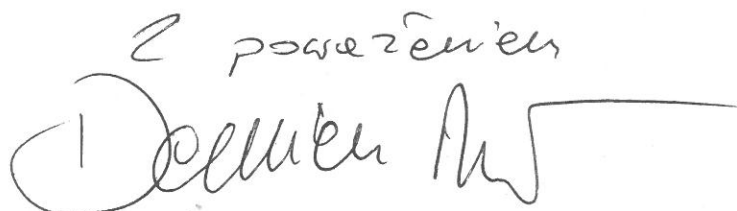 Z poważaniem
Damian